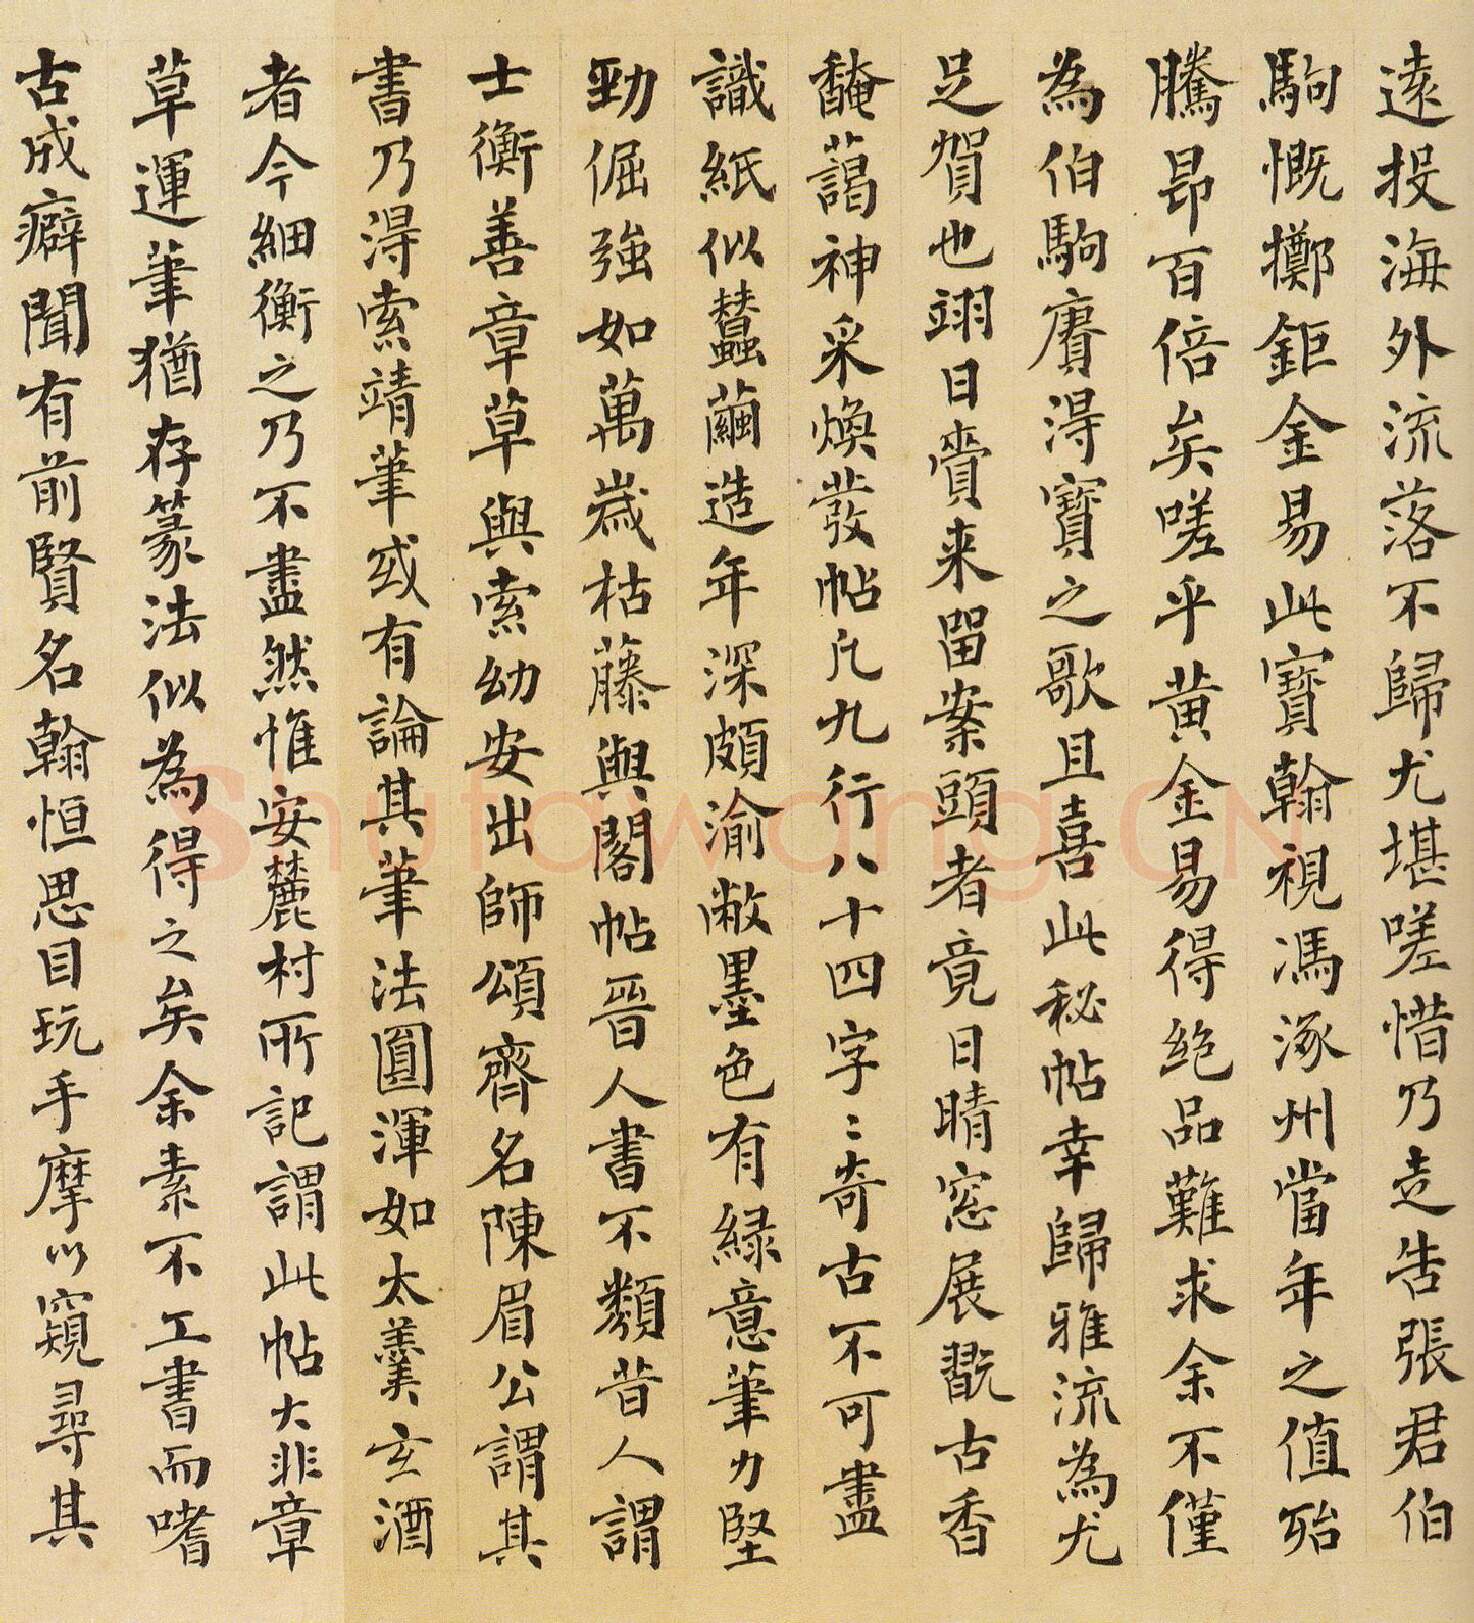 遠投海外流落不歸尤堪嗟惜乃走告張君伯
駒慨擲鉅金易此寶翰視馮涿州當年之值殆
騰昂百倍矣嗟乎黃金易得絕品難求余不僅
為伯駒賡得寶之歌且喜此秘帖幸歸雅流為尤
足賀也翊日賷来留案頭者竟日晴窓展翫古香
馣藹神采煥發帖凡九行八十四字〻奇古不可盡
識紙似蠶繭造年深頗渝敝墨色有緑意筆力堅
勁倔強如萬嵗枯藤與閣帖晉人書不類昔人謂
士衡善章草與索幼安出師頌齊名陳眉公謂其
書乃得索靖筆或有論其筆法圓渾如太羹玄酒
者今細衡之乃不盡然惟安麓村所記謂此帖大非章
草運筆猶存篆法似為得之矣余素不工書而嗜
古成癖聞有前賢名翰恒思目玩手摩以窺尋其
Shufawang.CN